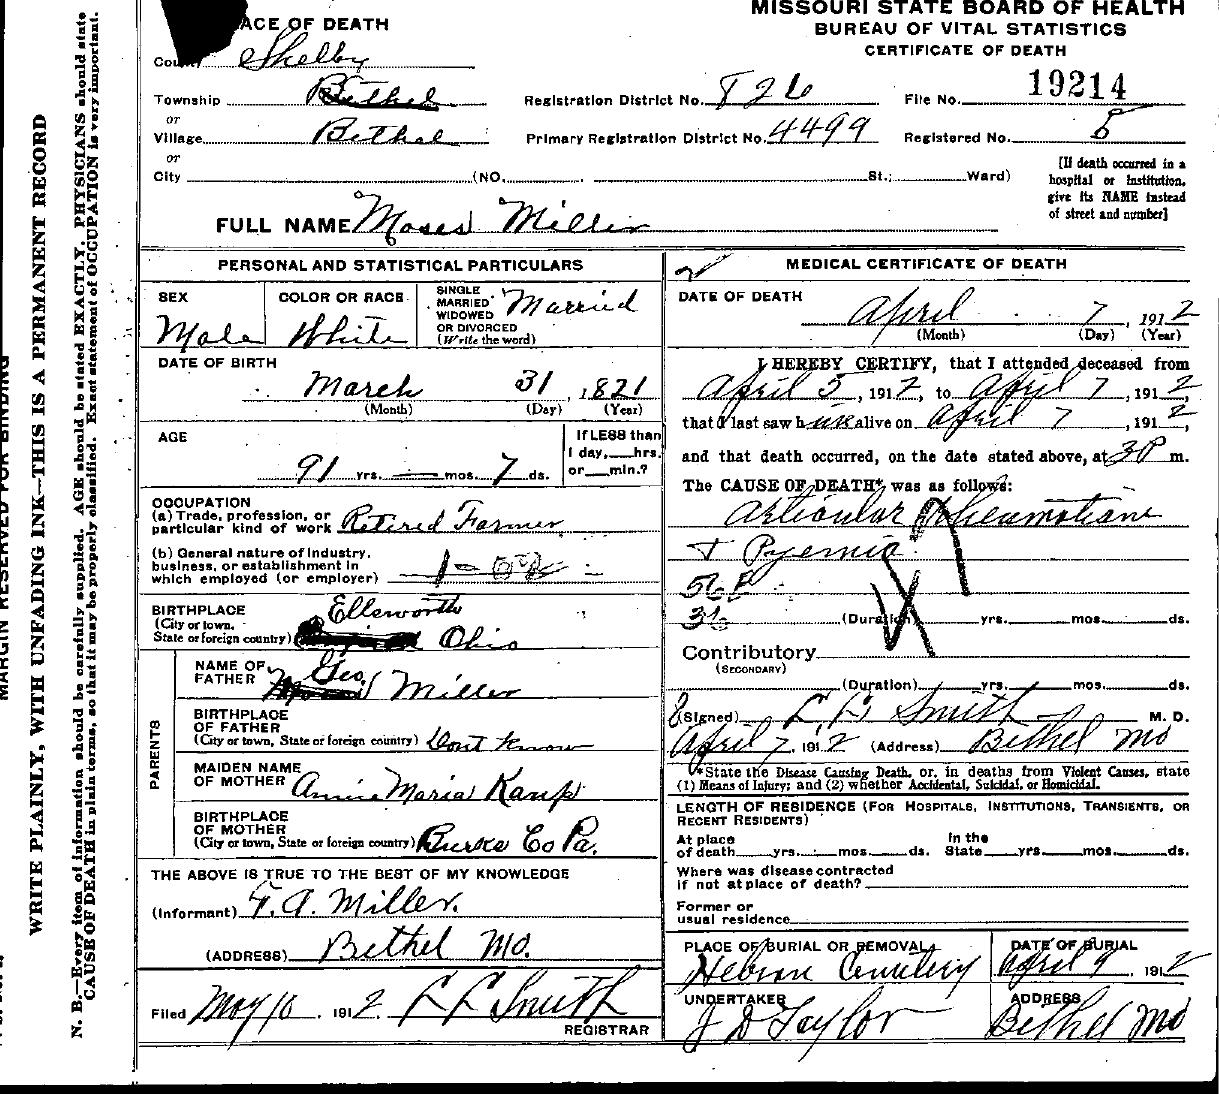 MISSOURI STATE BOARD OF HEALTH
BUREAU OF VITAL STATISTICS
CERTIFICATE OF DEATH
ACE OF DEATH
County Shelby
Township Bethel
Registration District No. 826
File No. 19214
or
Village Bethel
Primary Registration District No. 4499
Registered No. 8
or
City (NO. St.; Ward)
[If death occurred in a
hospital or institution,
give its NAME instead
of street and number]
FULL NAME Moses Miller
PERSONAL AND STATISTICAL PARTICULARS
SEX
Male
COLOR OR RACE
White
SINGLE
MARRIED
WIDOWED
OR DIVORCED
(Write the word)
Married
DATE OF BIRTH
March 31, 1821
(Month) (Day) (Year)
AGE
91 yrs. — mos. 7 ds.
If LESS than
1 day, hrs.
or min.?
OCCUPATION
(a) Trade, profession, or
particular kind of work Retired Farmer
(b) General nature of industry,
business, or establishment in
which employed (or employer)
BIRTHPLACE
(City or town,
State or foreign country)
Ellsworth
Ohio
PARENTS
NAME OF
FATHER Geo. Miller
BIRTHPLACE
OF FATHER
(City or town, State or foreign country) Dont Know
MAIDEN NAME
OF MOTHER Annie Maria Kamp
BIRTHPLACE
OF MOTHER
(City or town, State or foreign country) Burks Co Pa.
THE ABOVE IS TRUE TO THE BEST OF MY KNOWLEDGE
(Informant) F. A. Miller.
(ADDRESS) Bethel Mo.
Filed May 10, 1912. L L Smith
REGISTRAR
MEDICAL CERTIFICATE OF DEATH
DATE OF DEATH
April 7, 1912
(Month) (Day) (Year)
I HEREBY CERTIFY, that I attended deceased from
April 5, 1912, to April 7, 1912,
that I last saw him alive on April 7, 1912,
and that death occurred, on the date stated above, at 3P m.
The CAUSE OF DEATH* was as follows:
Articular Rheumatism
+ Pyemia
56
36
(Duration) yrs. mos. ds.
Contributory
(SECONDARY)
(Duration) yrs. mos. ds.
(Signed) L L Smith M. D.
April 7, 1912 (Address) Bethel Mo
*State the Disease Causing Death, or, in deaths from Violent Causes, state
(1) Means of Injury; and (2) whether Accidental, Suicidal, or Homicidal.
LENGTH OF RESIDENCE (For Hospitals, Institutions, Transients, or
Recent Residents)
At place
of death yrs. mos. ds.
In the
State yrs. mos. ds.
Where was disease contracted
if not at place of death?
Former or
usual residence
PLACE OF BURIAL OR REMOVAL
Hebron Cemetery
DATE OF BURIAL
April 9, 1912
UNDERTAKER
J D Taylor
ADDRESS
Bethel Mo
MARGIN RESERVED FOR BINDING
WRITE PLAINLY, WITH UNFADING INK—THIS IS A PERMANENT RECORD
N. B.—Every item of information should be carefully supplied. AGE should be stated EXACTLY. PHYSICIANS should state
CAUSE OF DEATH in plain terms, so that it may be properly classified. Exact statement of OCCUPATION is very important.